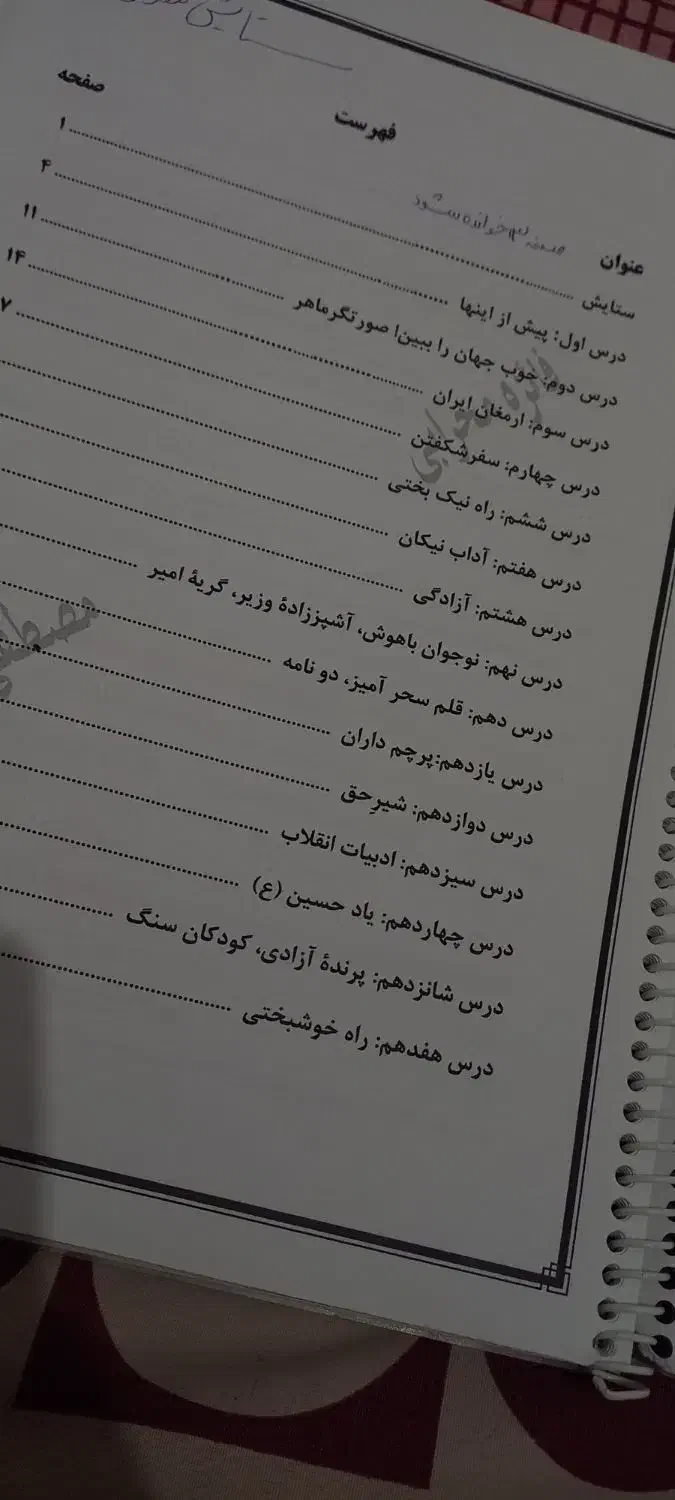 ستایش
فهرست
صفحه
عنوان
صفحه ۳ خوانده شود
ستایش ۱
درس اول: پیش از اینها ۴
درس دوم: خوب جهان را ببین! صورتگر ماهر ۱۱
درس سوم: ارمغان ایران ۱۴
درس چهارم: سفر شکفتن ۷
درس ششم: راه نیک بختی
درس هفتم: آداب نیکان
درس هشتم: آزادگی
درس نهم: نوجوان باهوش، آشپززادهٔ وزیر، گریهٔ امیر
درس دهم: قلم سحر آمیز، دو نامه
درس یازدهم: پرچم داران
درس دوازدهم: شیرِحق
درس سیزدهم: ادبیات انقلاب
درس چهاردهم: یاد حسین (ع)
درس شانزدهم: پرندهٔ آزادی، کودکان سنگ
درس هفدهم: راه خوشبختی